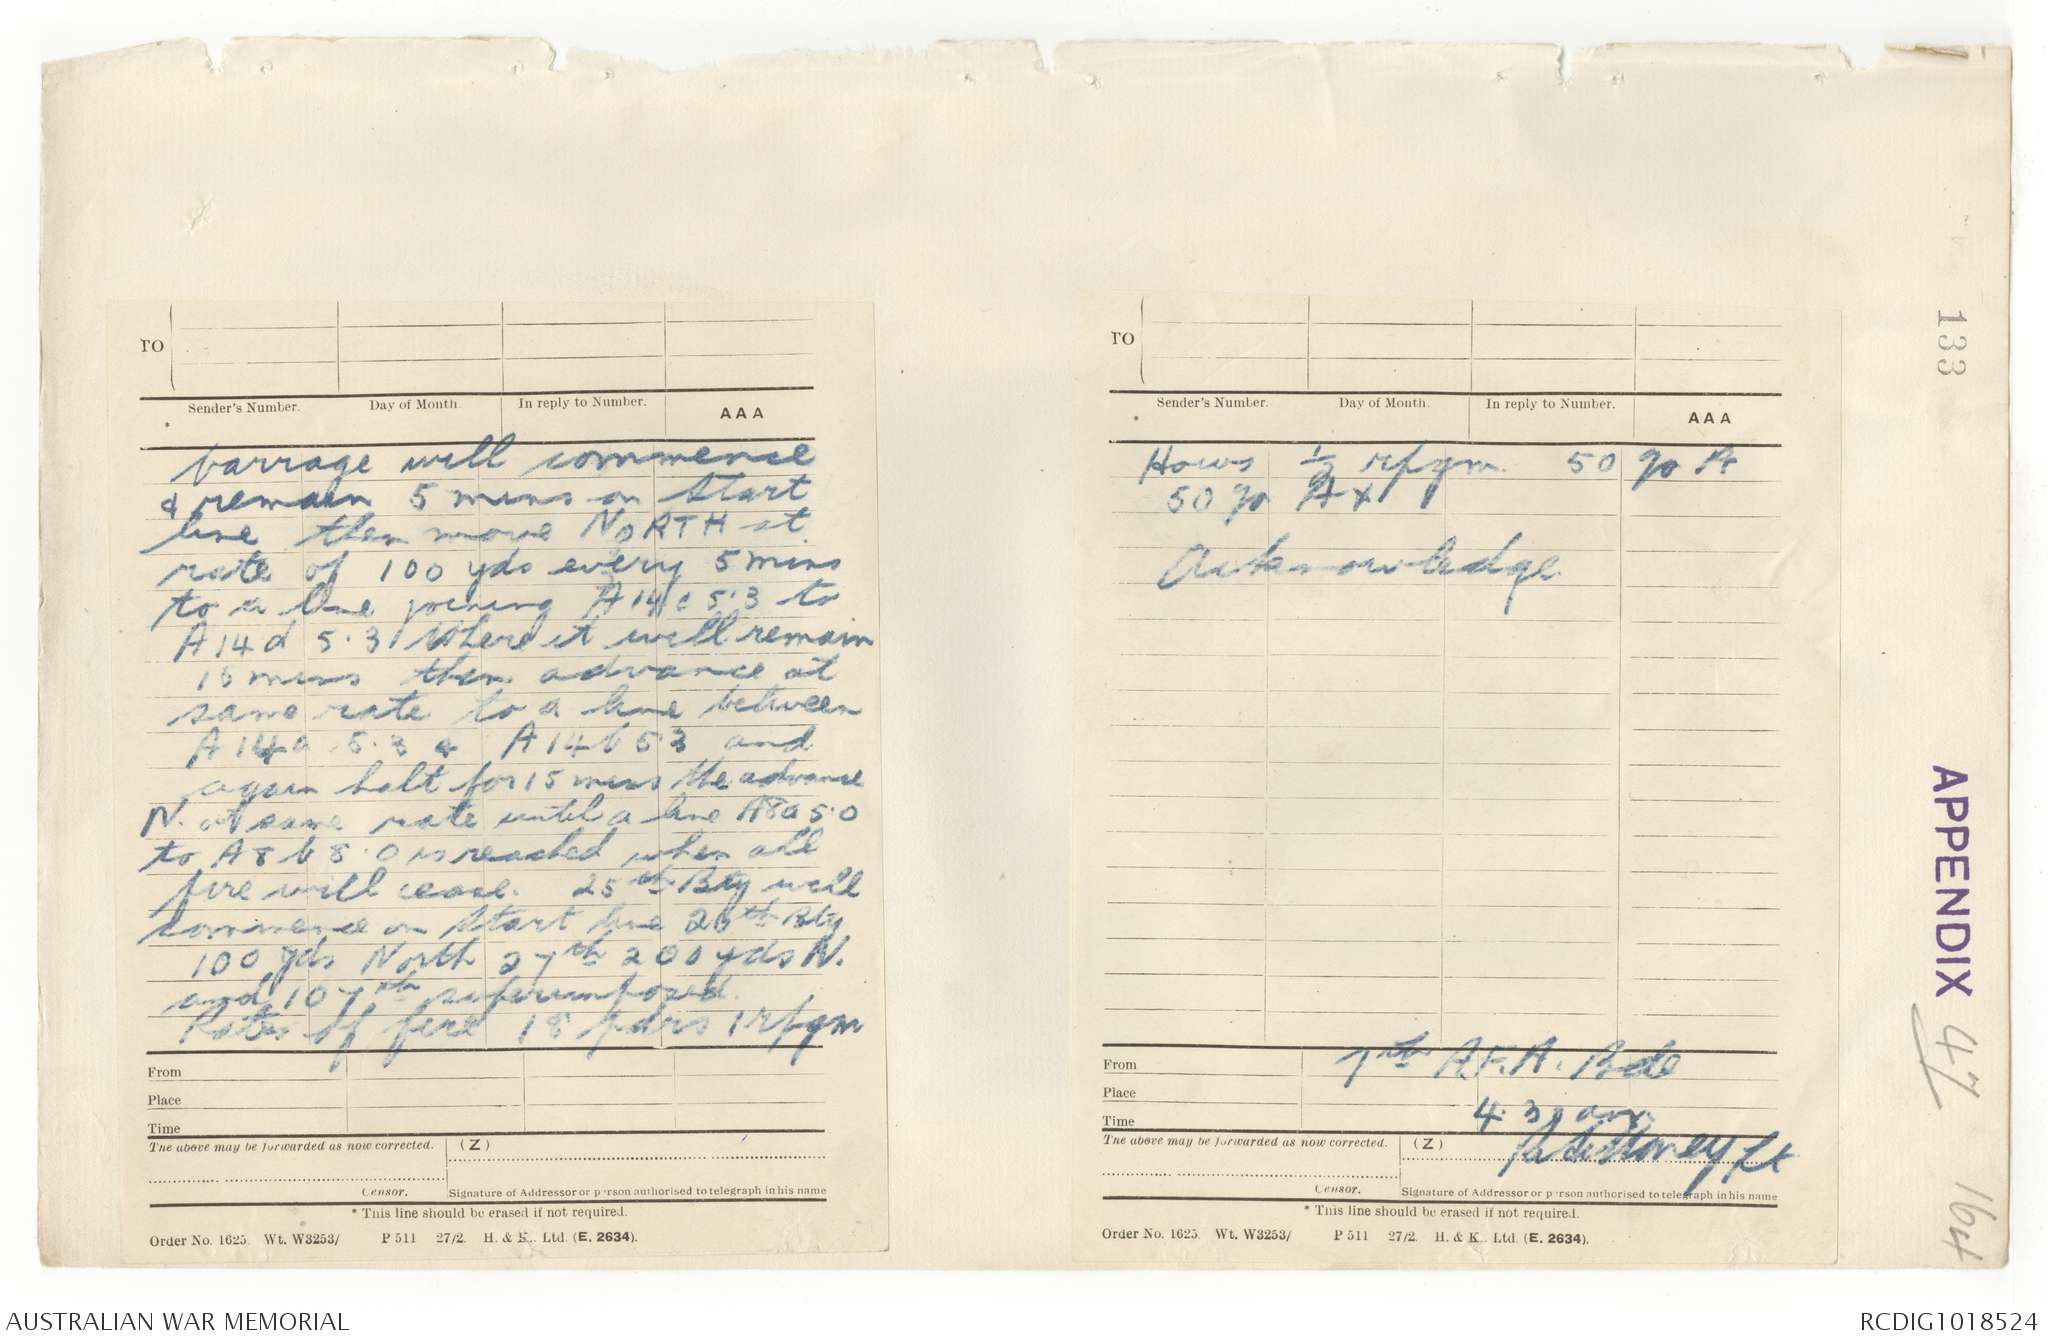 TO
Sender's Number.
Day of Month.
In reply to Number.
AAA
*
barrage will commence
& remain 5 mins on Start
line then move NORTH at
rate of 100 yds every 5 mins
to a line joining A14c 5.3 to
A14d 5.3 Where it will remain
15 mins then advance at
same rate to a line between
A14a 5.3 & A14b 5.3 and
again halt for 15 mins the advance
N. at same rate until a line A8a 5.0
to A8b 8.0 is reached when all
fire will cease. 25th Bty will
commence on Start line 26th Bty
100 yds North 27th 200 yds N.
and 107th superimposed.
Rates of fire 18 pdrs 1 rpgm
From
Place
Time
The above may be forwarded as now corrected.
(Z)
Censor.
Signature of Addressor or person authorised to telegraph in his name
* This line should be erased if not required.
Order No. 1625. Wt. W3253/ P 511 27/2. H. & K., Ltd. (E. 2634).
TO
Sender's Number.
Day of Month.
In reply to Number.
AAA
*
Hows ½ rpgm. 50 % A
50 % AX
Acknowledge
From
7th A.F.A. Bde
Place
Time
4.30 am
The above may be forwarded as now corrected.
(Z)
Lt
Censor.
Signature of Addressor or person authorised to telegraph in his name
* This line should be erased if not required.
Order No. 1625. Wt. W3253/ P 511 27/2. H. & K., Ltd. (E. 2634).
133
APPENDIX 47
164
AUSTRALIAN WAR MEMORIAL
RCDIG1018524